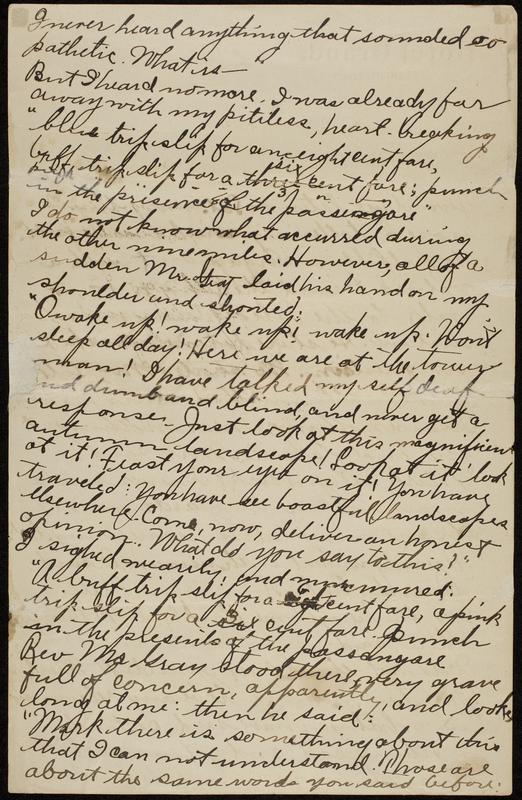 I never heard anything that sounded so
pathetic. What is—
But I heard no more. I was already far
away with my pitiless, heart-breaking
"blue trip slip for an eight cent fare,
buff trip slip for a six cent fare; punch
in the presence of the passengare"
I do not know what accurred during
the other nine miles. However, all of a
sudden Mr. laid his hand on my
shoulder and shouted:
"O wake up! wake up! wake up. Won't
sleep all day! Here we are at the tower
man! I have talked myself deaf
and dumb and blind, and never get a
response. Just look at this magnificient
autumn landscape! Look at it! look
at it! Feast your eye on it! You have
traveled: you have see boastful landscapes
elsewhere. Come, now, deliver an honest
opinion. What do you say to this?"
I sighed wearily and murmured:
"A buff trip slip for a 6 cent fare, a pink
trip slip for a cent fare. Punch
in the presents of the passangare
Rev Mr Gray stood there, very grave
full of concern, apparently, and looked
long at me: then he said:
"Mark there is something about this
that I can not understand. Those are
about the same words you said before: